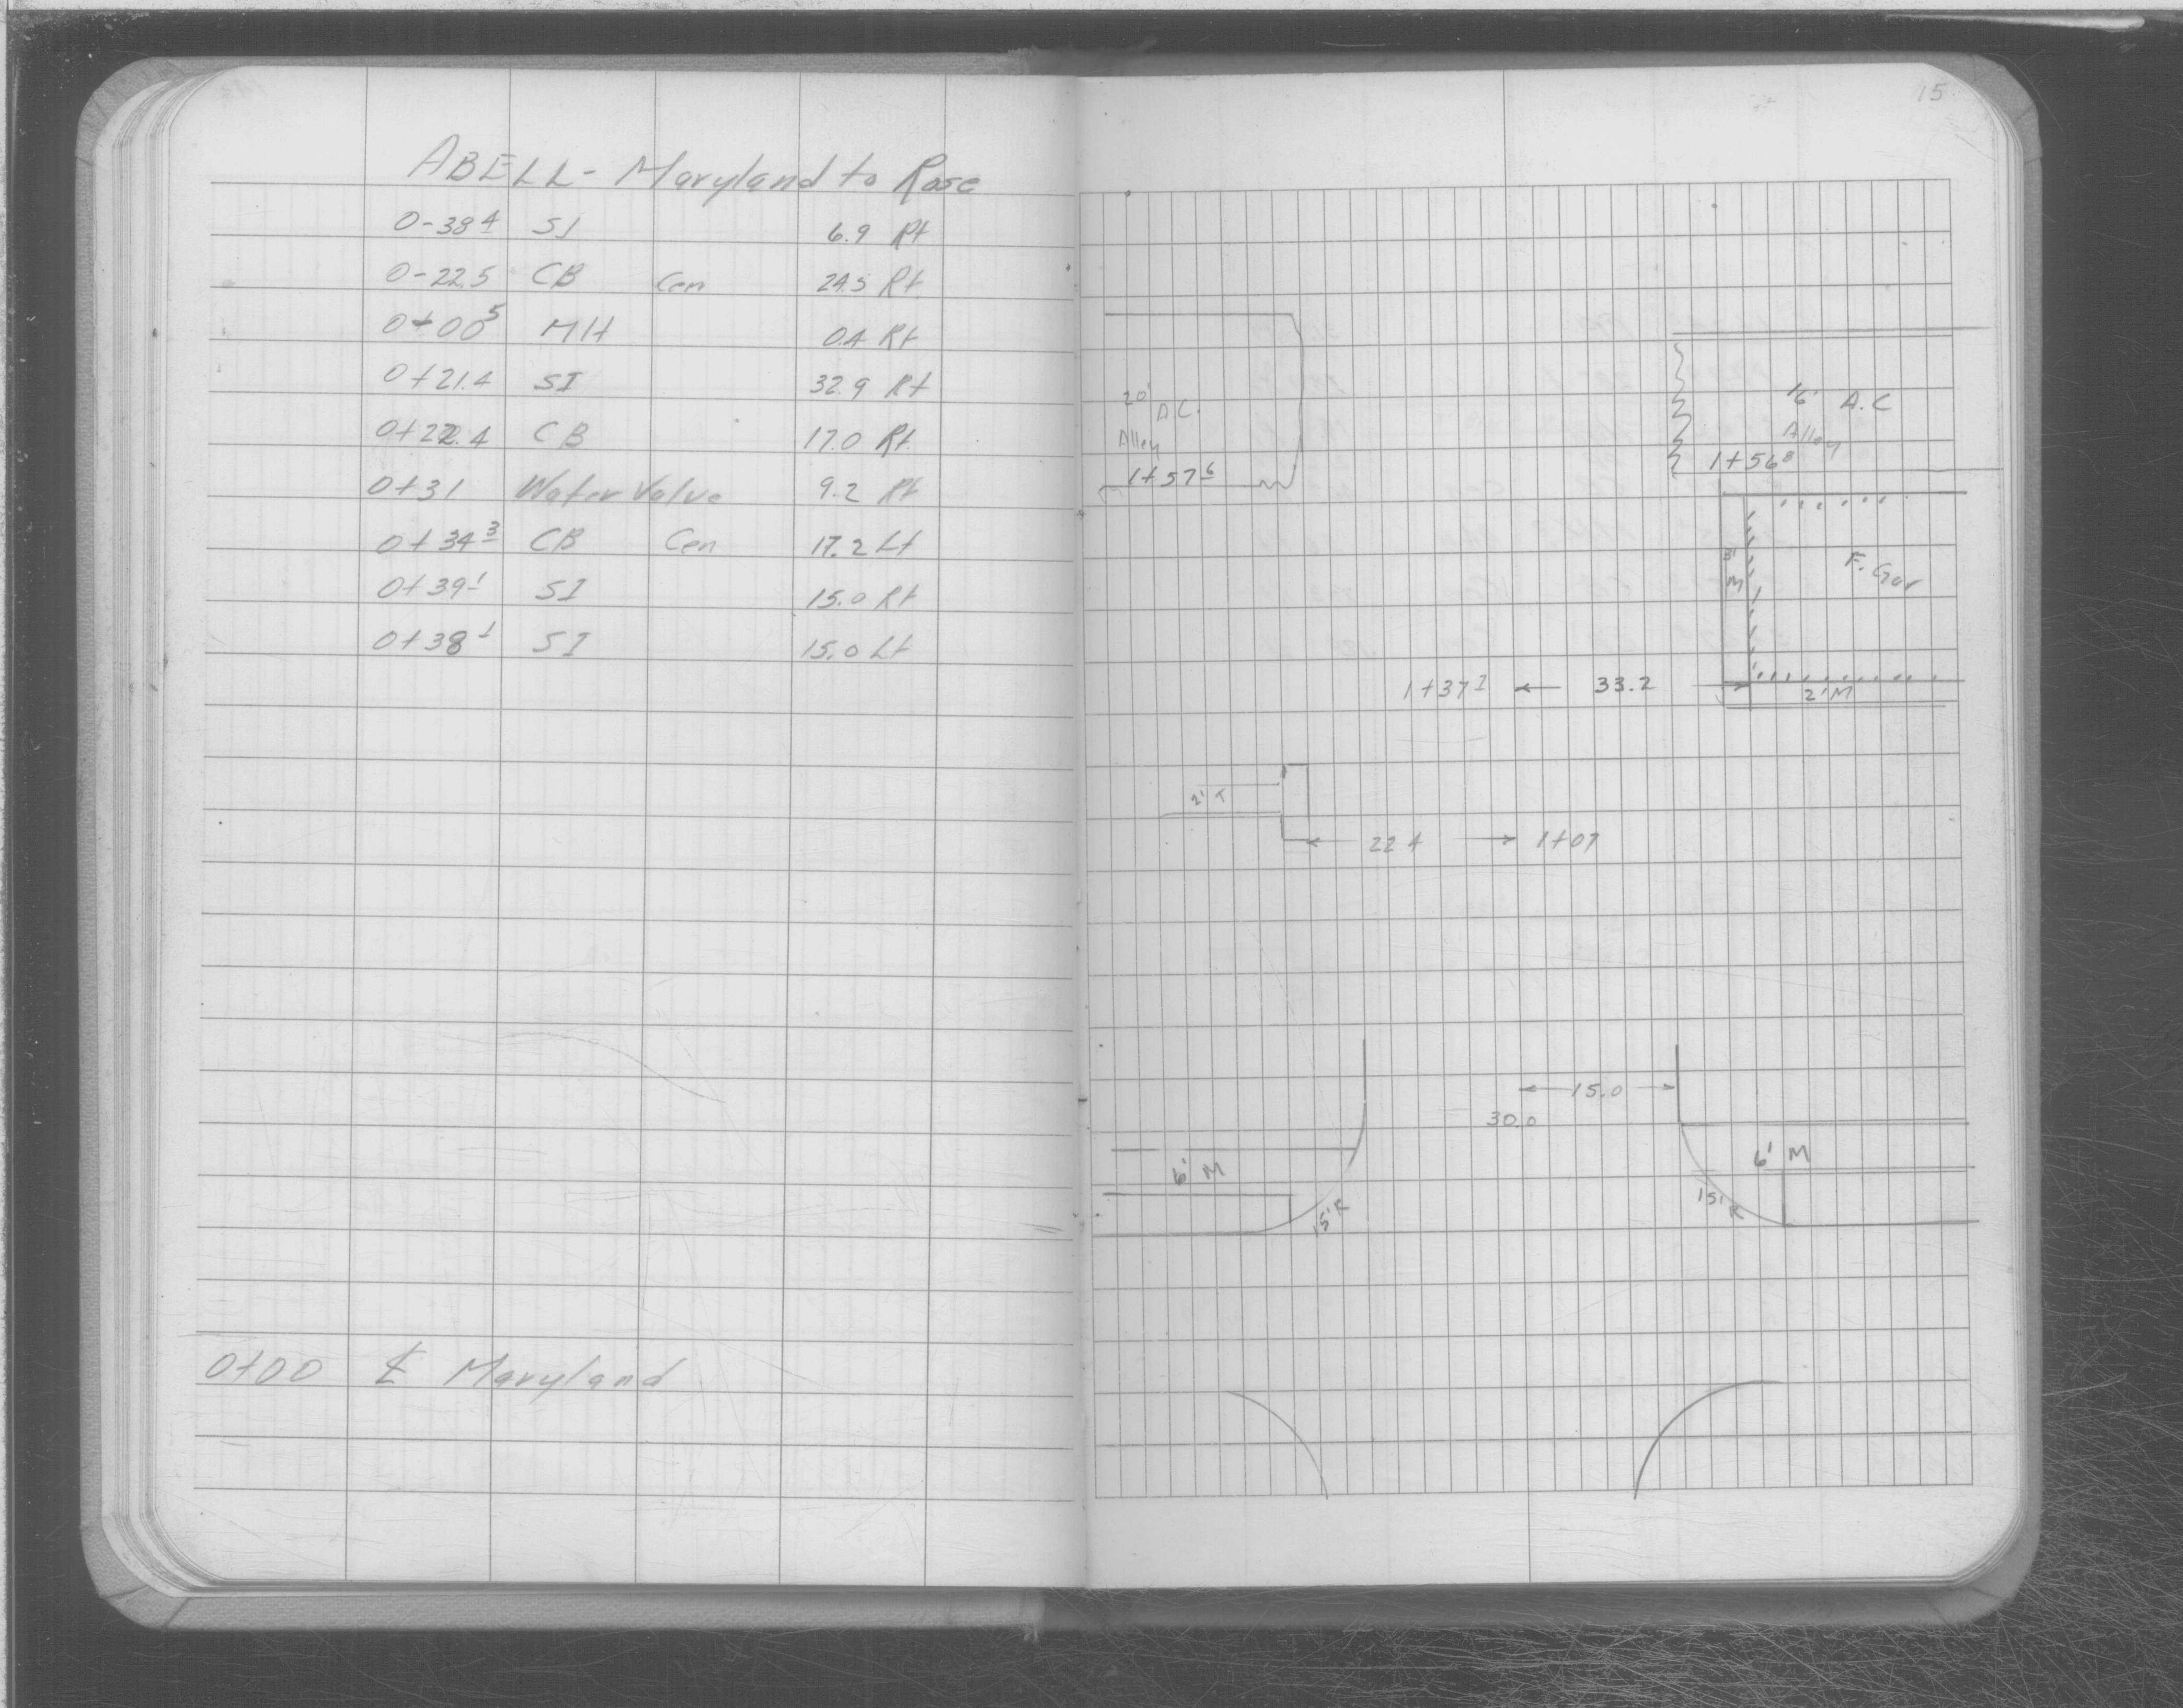 15
ABELL - Maryland to Rose
0-38 4 SI 6.9 Rt
0-22.5 CB Cen 24.5 Rt
0+00 5 MH 0.4 Rt
0+21.4 SI 32.9 Rt
0+22.4 CB 17.0 Rt
0+31 Water Valve 9.2 Rt
0+34 3 CB Cen 17.2 Lt
0+39 1 SI 15.0 Rt
0+38 1 SI 15.0 Lt
0+00 ₵ Maryland
20' A.C.
Alley
1+57 6
16' A.C
Alley
1+56 8
3'
M
F. Gar
1+37 2 33.2
2' M
2' T
22 4 1+07
15.0
30.0
6' M
6' M
15' R
15' R